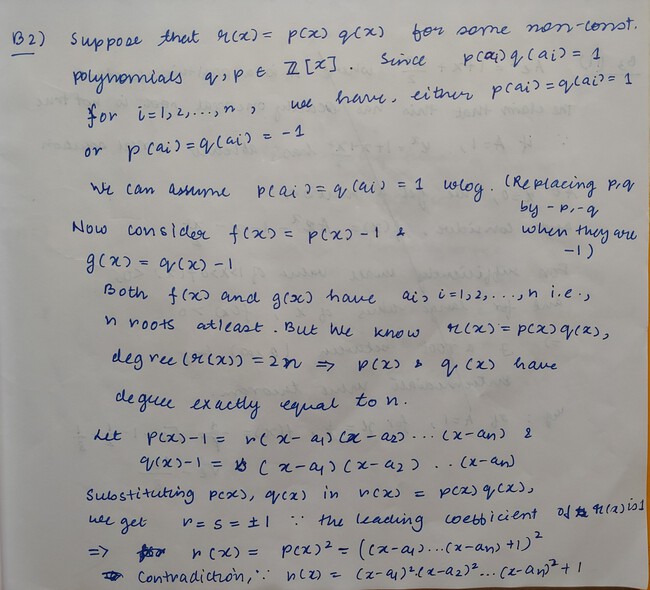 B2) Suppose that r(x) = p(x) q(x) for some non-const.
polynomials q, p ∈ ℤ[x]. Since p(ai)q(ai) = 1
for i=1,2,...,n, we have, either p(ai)=q(ai)=1
or p(ai)=q(ai)=-1
We can assume p(ai)=q(ai)=1 wlog. (Replacing p,q
by -p,-q
when they are
-1)
Now consider f(x) = p(x)-1 &
g(x) = q(x)-1
Both f(x) and g(x) have ai, i=1,2,...,n i.e.,
n roots atleast. But we know r(x)=p(x)q(x),
degree(r(x))=2n ⇒ p(x) & q(x) have
degree exactly equal to n.
Let p(x)-1 = r(x-a1)(x-a2)...(x-an) &
q(x)-1 = s(x-a1)(x-a2)..(x-an)
Substituting p(x), q(x) in r(x) = p(x)q(x),
we get r=s=±1 ∵ the leading coefficient of r(x) is 1
⇒ r(x) = p(x)² = ((x-a1)...(x-an)+1)²
Contradiction, ∵ r(x) = (x-a1)²(x-a2)²...(x-an)²+1